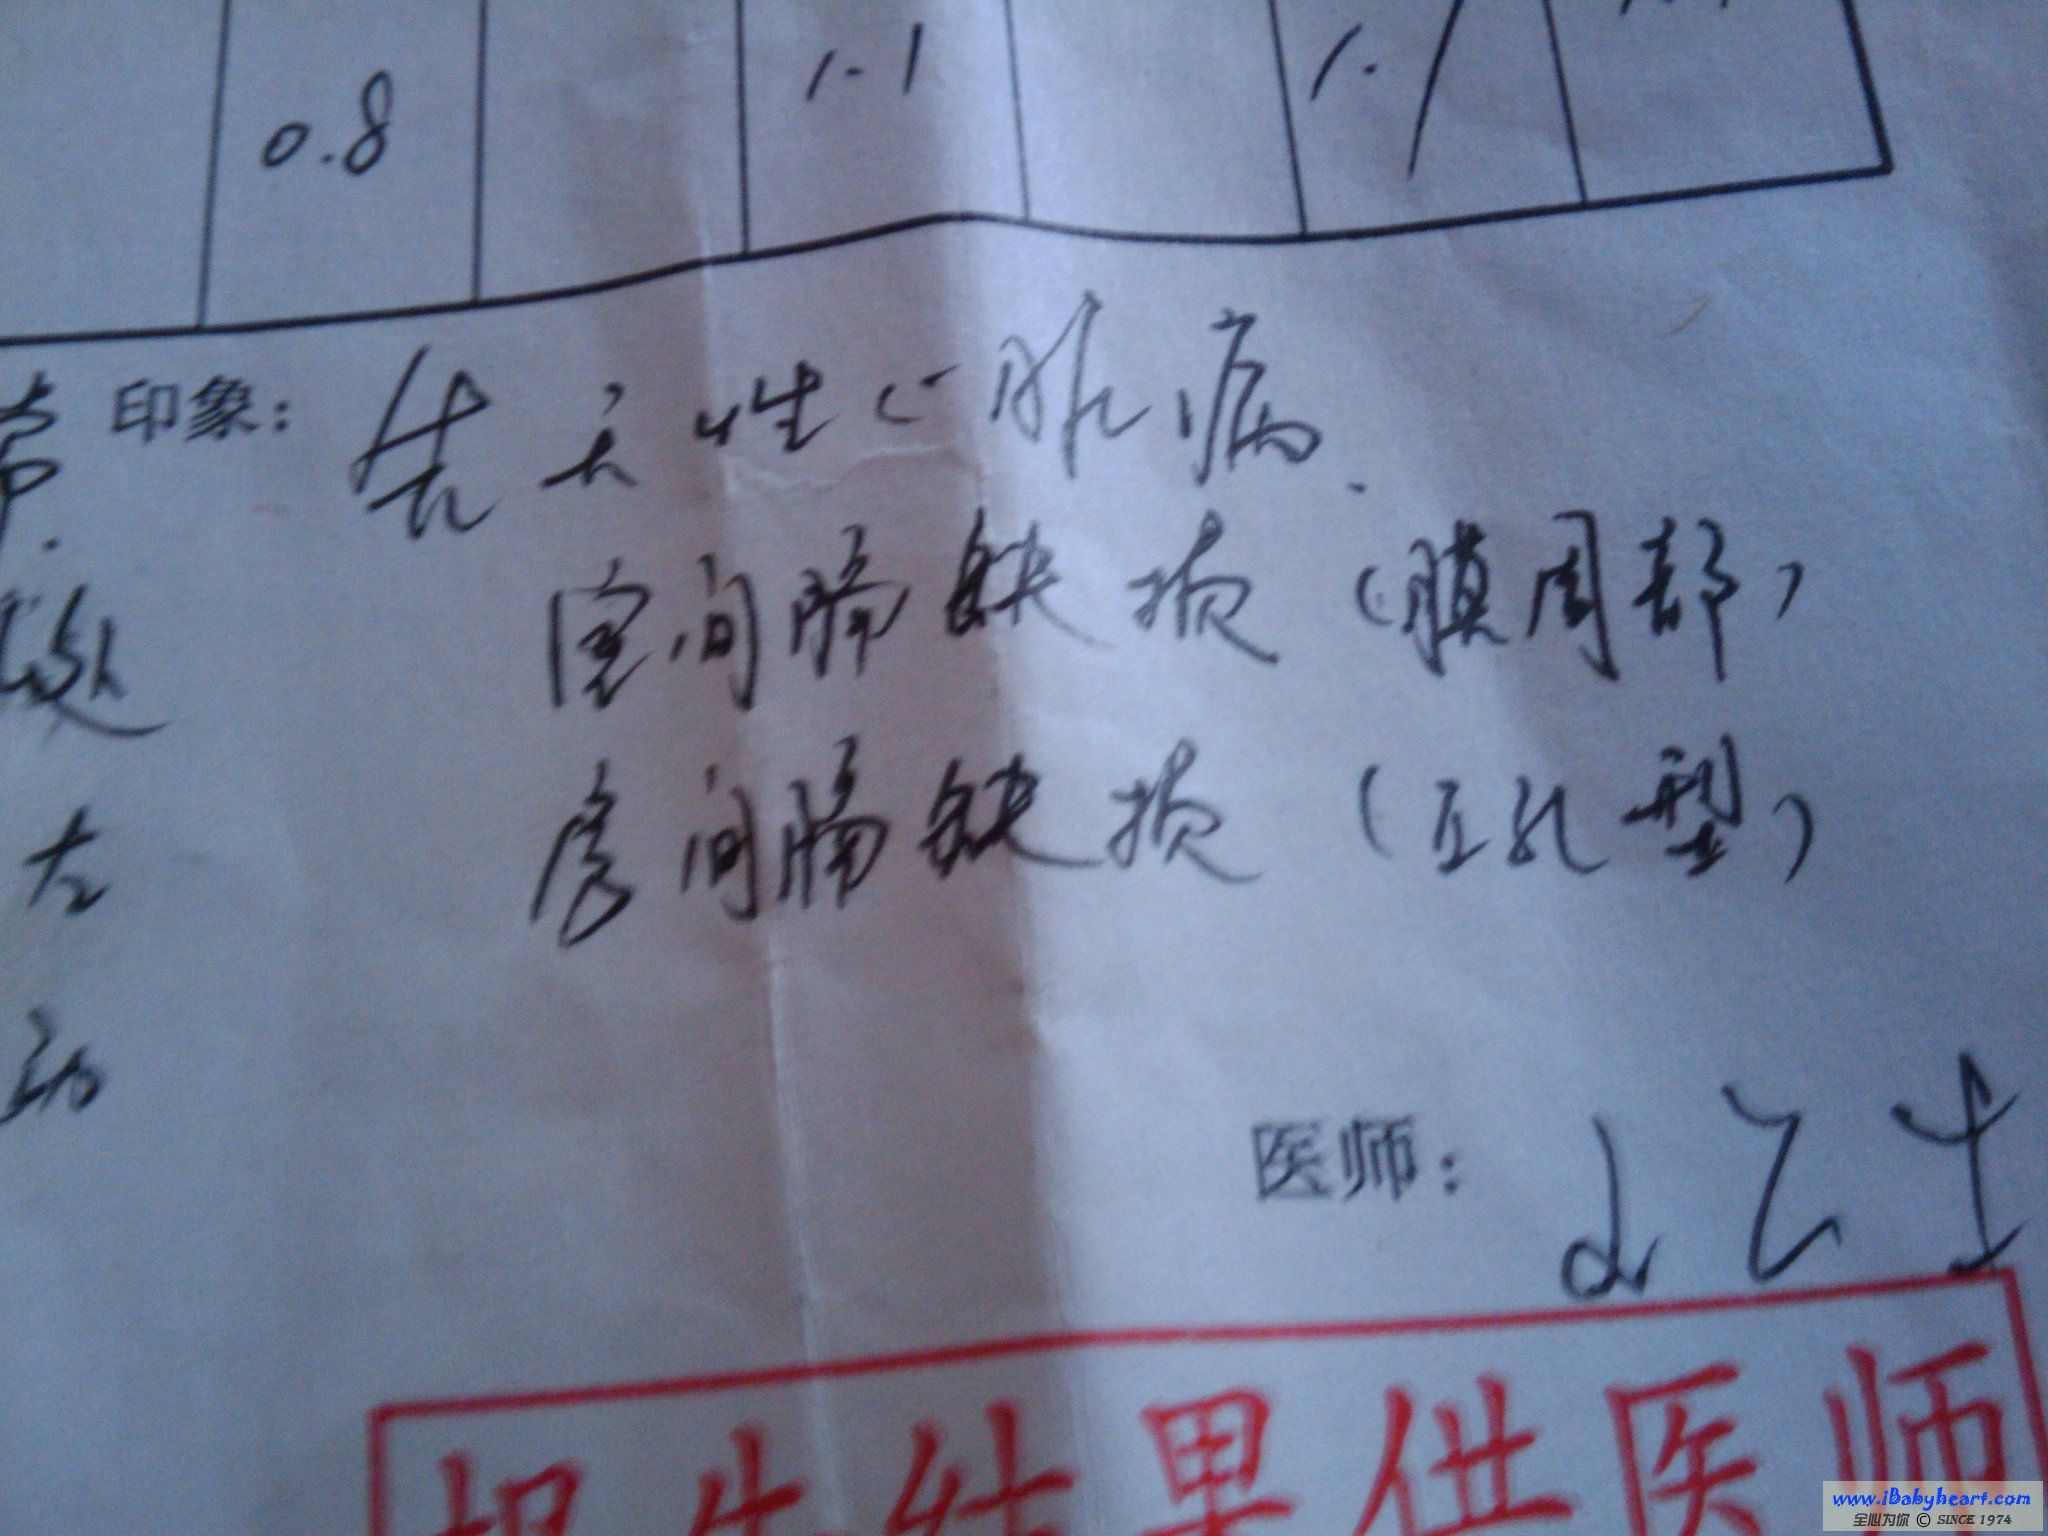 0.8 1.1 1.1
印象: 先天性心脏病.
室间隔缺损 (膜周部)
房间隔缺损 (II孔型)
左
动
医师:
报告结果供医师
www.iBabyheart.com
全心为你 © SINCE 1974